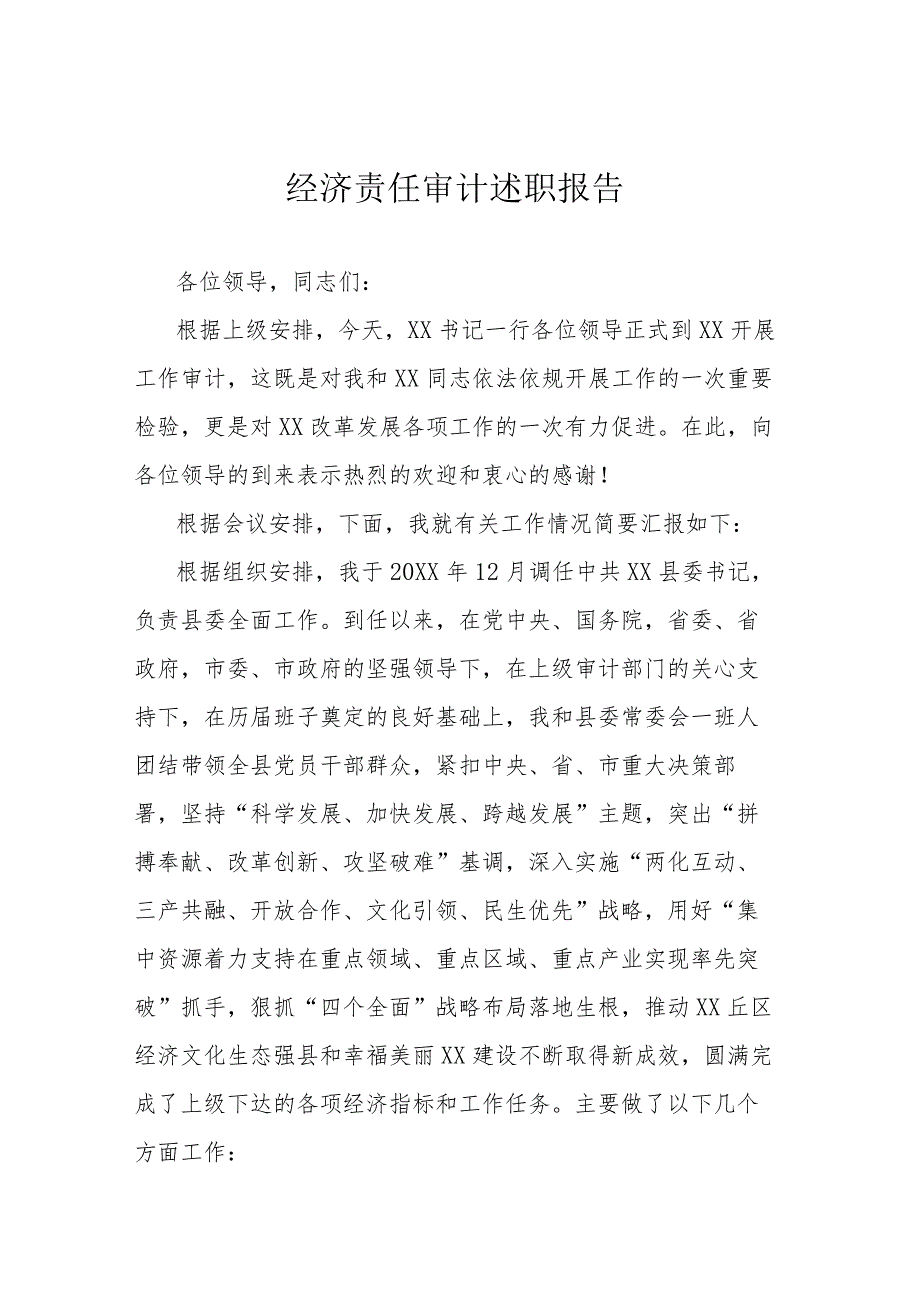 经济责任审计述职报告
各位领导，同志们：
根据上级安排，今天，XX 书记一行各位领导正式到 XX 开展
工作审计，这既是对我和 XX 同志依法依规开展工作的一次重要
检验，更是对 XX 改革发展各项工作的一次有力促进。在此，向
各位领导的到来表示热烈的欢迎和衷心的感谢！
根据会议安排，下面，我就有关工作情况简要汇报如下：
根据组织安排，我于 20XX 年 12 月调任中共 XX 县委书记，
负责县委全面工作。到任以来，在党中央、国务院，省委、省
政府，市委、市政府的坚强领导下，在上级审计部门的关心支
持下，在历届班子奠定的良好基础上，我和县委常委会一班人
团结带领全县党员干部群众，紧扣中央、省、市重大决策部
署，坚持“科学发展、加快发展、跨越发展”主题，突出“拼
搏奉献、改革创新、攻坚破难”基调，深入实施“两化互动、
三产共融、开放合作、文化引领、民生优先”战略，用好“集
中资源着力支持在重点领域、重点区域、重点产业实现率先突
破”抓手，狠抓“四个全面”战略布局落地生根，推动 XX 丘区
经济文化生态强县和幸福美丽 XX 建设不断取得新成效，圆满完
成了上级下达的各项经济指标和工作任务。主要做了以下几个
方面工作：